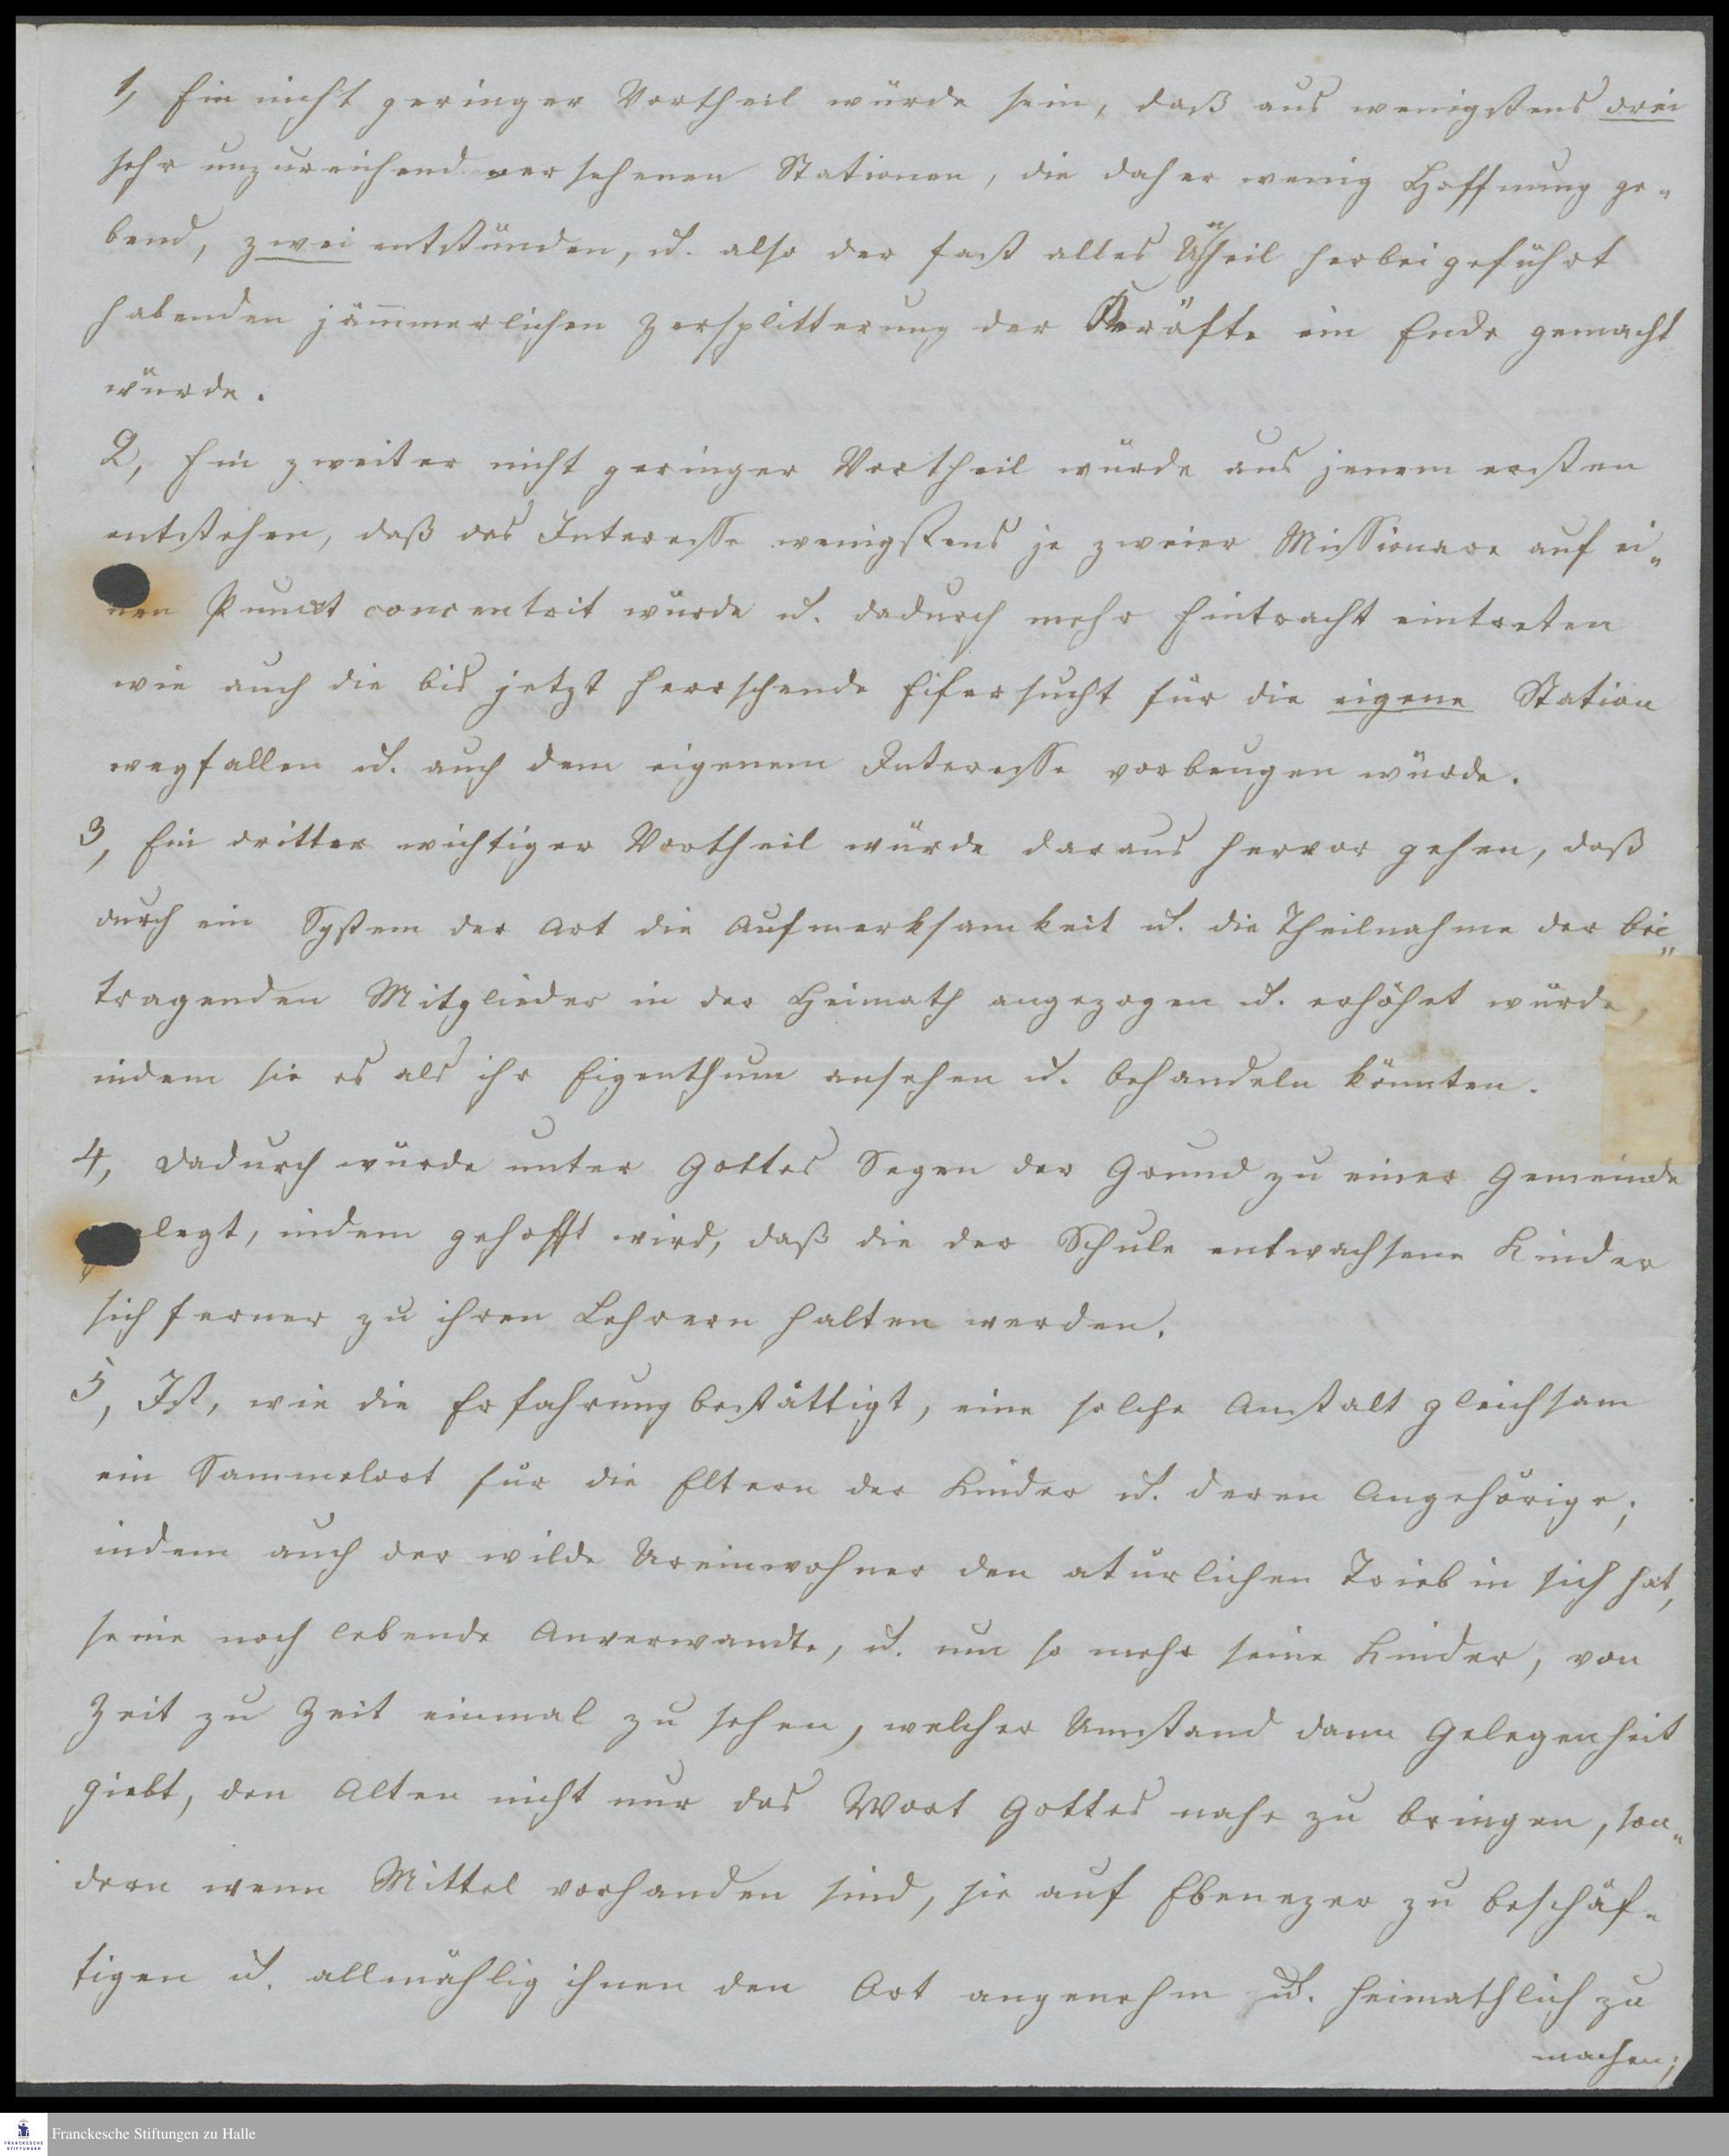 1, Ein nicht geringer Vortheil würde sein, daß aus wenigstens drei
sehr unzureichend versehenen Stationen, die daher wenig Hoffnung ge-
bend, zwei entstünden, u. also der fast alles Unheil herbeigeführt
habenden jämmerlichen Zersplitterung der Kräfte ein Ende gemacht
würde.
2, Ein zweiter nicht geringer Vortheil würde aus jenem ersten
entstehen, daß das Interesse wenigstens je zweier Missionare auf ei-
nen Punct concentrit würde u. dadurch mehr Eintracht eintreten
wie auch die bis jetzt herrschende Eifersucht für die eigene Station
wegfallen u. auch dem eigenem Interesse vorbeugen würde.
3, Ein dritter wichtiger Vortheil würde daraus hervor gehen, daß
durch ein System der Art die Aufmerksamkeit u. die Theilnahme der bei-
tragenden Mitglieder in der Heimath angezogen u. erhöhet würde,
indem sie es als ihr Eigenthum ansehen u. behandeln könnten.
4, Dadurch würde unter Gottes Segen der Grund zu einer Gemeinde
gelegt, indem gehofft wird, daß die der Schule entwachsene Kinder
sich ferner zu ihren Lehrern halten werden.
5, Ist, wie die Erfahrung bestättigt, eine solche Anstalt gleichsam
ein Sammelort für die Eltern der Kinder u. deren Angehörige;
indem auch der wilde Ureinwohner den atürlichen Trieb in sich hat,
seine noch lebende Anverwandte, u. um so mehr seine Kinder, von
Zeit zu Zeit einmal zu sehen, welcher Umstand dann Gelegenheit
giebt, den Alten nicht nur das Wort Gottes nahe zu bringen, son-
dern wenn Mittel vorhanden sind, sie auf Ebenezer zu beschäf-
tigen u. allmählig ihnen den Ort angenehm u. heimathlich zu
machen;
Franckesche Stiftungen zu Halle